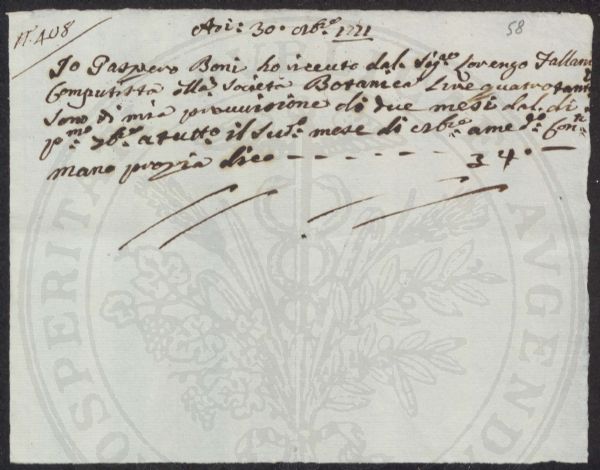 N. 408
58
Adi: 30. 8bre 1771
Io Gaspero Boni ho riceuto dal Sigre Lorenzo Fallani
Computista della Società Botanica Lire quatro tanti
Sono di mia provvisione di due mesi dal dì
pmo 7bre a tutto il Sudo mese di 8bre a me do Conti
mano propria dico - - - - - - - - 34. —
PROSPERITATI AVGENDAE